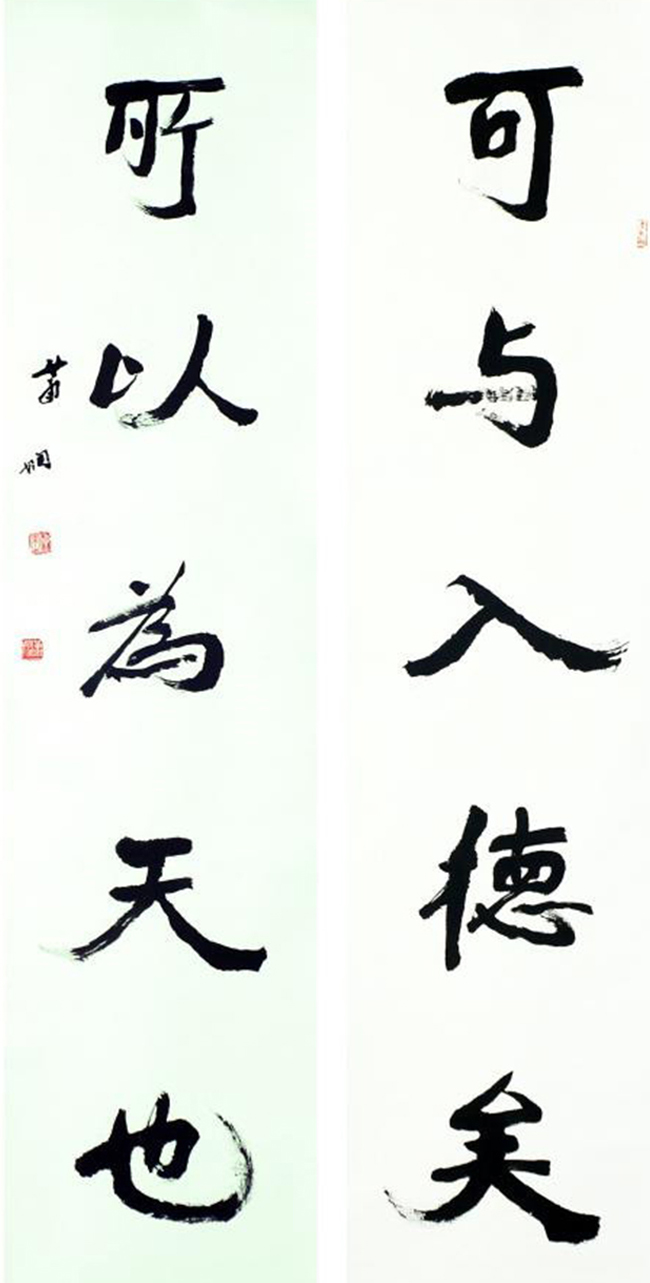 可与入德矣
所以為天也
蕭嫻